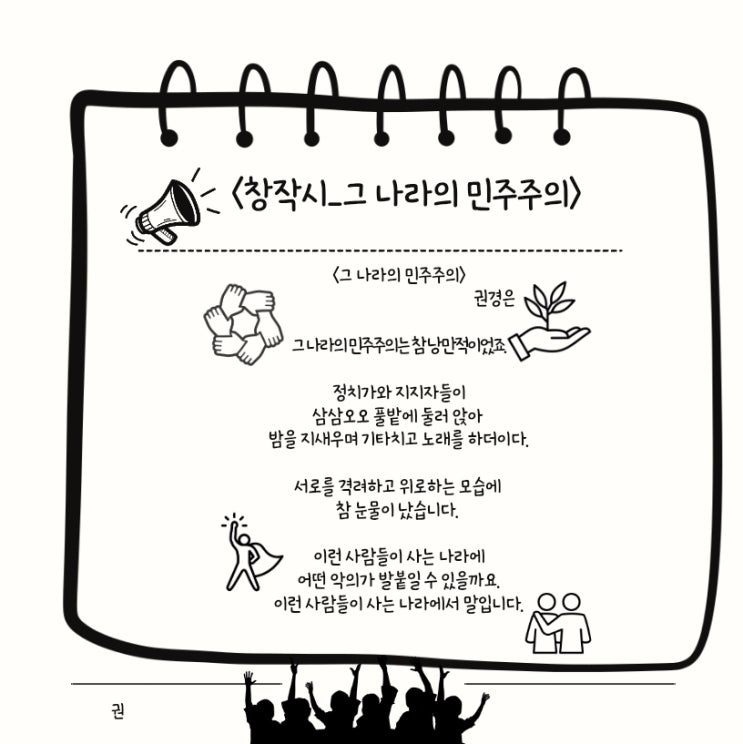 <창작시_그 나라의 민주주의>
<그 나라의 민주주의>
권경은
그 나라의 민주주의는 참 낭만적이었죠.
정치가와 지지자들이
삼삼오오 풀밭에 둘러 앉아
밤을 지새우며 기타치고 노래를 하더이다.
서로를 격려하고 위로하는 모습에
참 눈물이 났습니다.
이런 사람들이 사는 나라에
어떤 악의가 발붙일 수 있을까요.
이런 사람들이 사는 나라에서 말입니다.
권